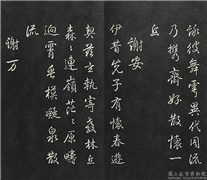 詠彼舞雩異代同流
乃攜齊好散懷一
丘
謝安
伊昔先子有懷春遊
契茲言執寄傲林丘
森〻連嶺茫〻原疇
迥霄垂霧凝泉散
流
謝万